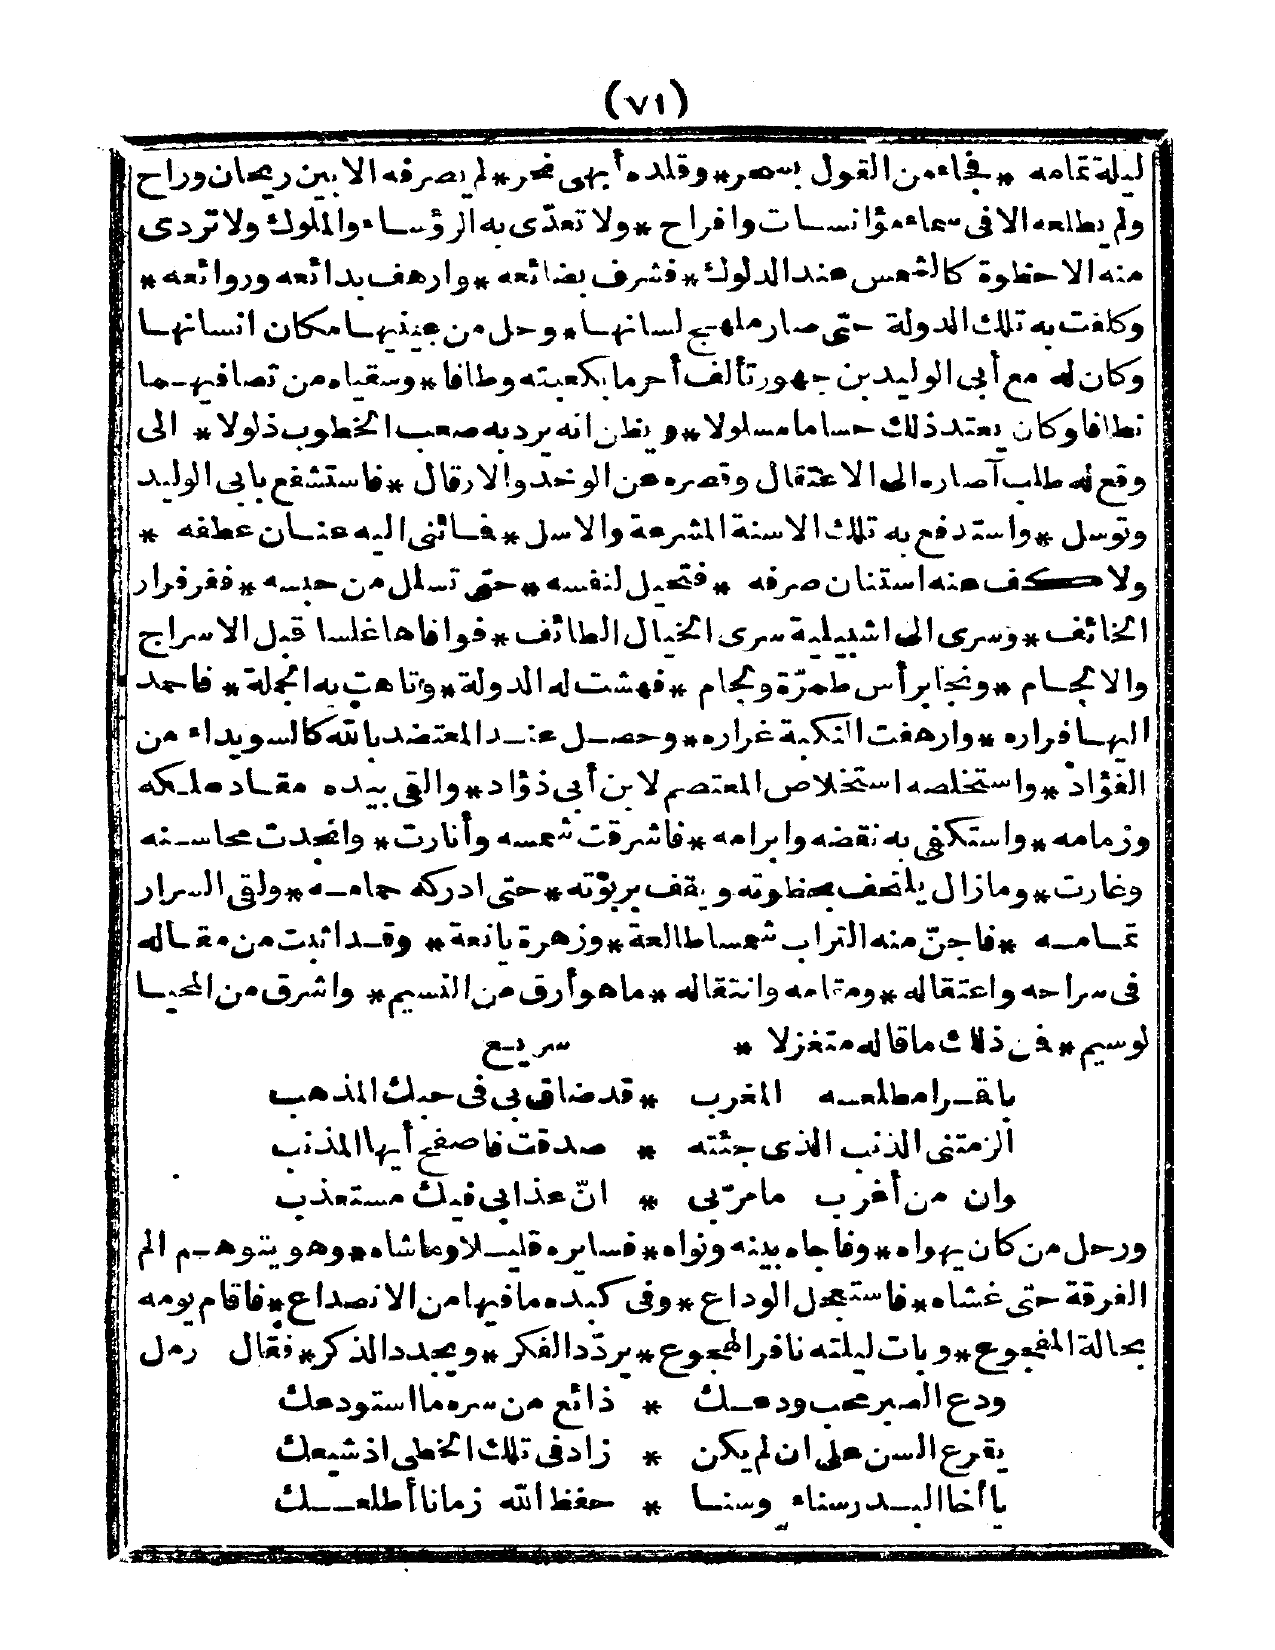 (٧١)
ليلة تمامه * فجاء من القول بسحر * وقلده أبهى نحر * لم يصرفه الا بين ريحان وراح
ولم يطلعه الا فى سماء مؤانسات وافراح * ولا تعدّى به الرؤساء والملوك ولا تردى
منه الا حظوة كالشمس عند الدلوك * فشرف بضائعه * وارهف بدائعه وروائعه *
وكلفت به تلك الدولة حتى صار ملهج لسانها * وحل من عينيها مكان انسانها
وكان له مع أبى الوليد بن جهور تألف أحرما بكعبته وطافا * وسقياه من تصافيهما
نطافا وكان يعتد ذلك حساما مسلولا * ويظن انه يرد به صعب الخطوب ذلولا * الى
وقع له طلب آصاره الى الاعتقال وقصره عن الوخد والارقال * فاستشفع بابى الوليد
وتوسل * واستدفع به تلك الاسنة المشرعة والاسل * فما ثنى اليه عنان عطفه *
ولا كف عنه استنان صرفه * فتحيل لنفسه * حتى تسلل من حبسه * ففر فرار
الخائف * وسرى الى اشبيلية سرى الخيال الطائف * فوافاها غلسا قبل الاسراج
والالجام * ونجا برأس طمرّة ولجام * فهشت له الدولة * وتاهت به الجملة * فاحمد
اليها فراره * وارهفت النكبة غراره * وحصل عند المعتضد بالله كالسويداء من
الفؤاد * واستخلصه استخلاص المعتصم لابن أبى دؤاد * والقى بيده مقاد ملكه
وزمامه * واستكفى به نقضه وابرامه * فاشرقت شمسه وأنارت * وانجدت محاسنه
وغارت * ومازال يلتحف بحظوته ويقف بربوته * حتى ادركه حمامه * ولقى السرار
تمامه * فاجنّ منه التراب شمسا طالعة * وزهرة يانعة * وقد اثبت من مقاله
فى سراحه واعتقاله * ومقامه وانتقاله * ما هو أرق من النسيم * واشرق من المحيا
لوسيم * فمن ذلك ما قاله متغزلا * سريع
ياقمرا مطلعه المغرب * قد ضاق بى فى حبك المذهب
الزمتنى الذنب الذى جئته * صدقت فاصفح أيها المذنب
وان من أغرب ما مرّ بى * انّ عذابى فيك مستعذب
ورحل من كان يهواه * وفاجاه بينه ونواه * فسايره قليلا وماشاه * وهو يتوهم الم
الفرقة حتى غشاه * فاستعجل الوداع * وفى كبده ما فيها من الانصداع * فاقام يومه
بحالة المفجوع * وبات ليلته نافر الهجوع * يردّد الفكر * ويجدد الذكر * فقال رمل
ودع الصبر محب ودعك * ذائع من سره ما استودعك
يقرع السن على ان لم يكن * زاد فى تلك الخطى اذ شيعك
يا أخا البدر سناء وسنا * حفظ الله زمانا أطلعك